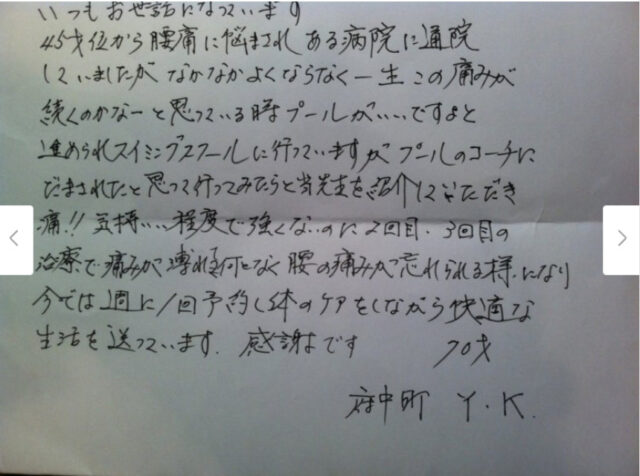 いつもお世話になっています
45才位から腰痛に悩まされ ある病院に通院
していましたが なかなかよくならなく一生この痛みが
続くのかなーと思っている時プールがいいですよと
進められスイミングスクールに行っていますが プールのコーチに
だまされたと思って行ってみたらと当先生を紹介していただき
痛!! 気持いい程度で強くないのに 2回目・3回目の
治療で痛みが薄れ何となく腰の痛みが忘れられる様になり
今では週に1回予約し体のケアをしながら快適な
生活を送っています. 感謝です 70才
府中町 Y・K.